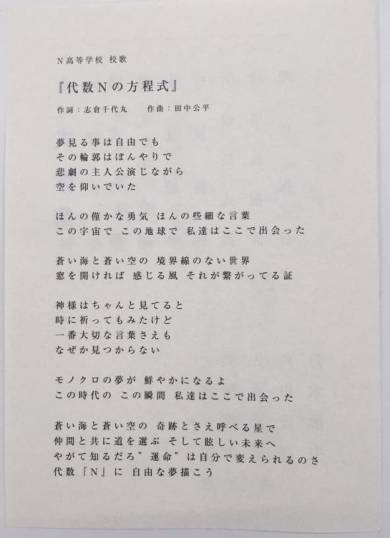 N高等学校 校歌
『代数Nの方程式』
作詞：志倉千代丸　作曲：田中公平
夢見る事は自由でも
その輪郭はぼんやりで
悲劇の主人公演じながら
空を仰いでいた
ほんの僅かな勇気 ほんの些細な言葉
この宇宙で この地球で 私達はここで出会った
蒼い海と蒼い空の 境界線のない世界
窓を開ければ 感じる風 それが繋がってる証
神様はちゃんと見てると
時に祈ってもみたけど
一番大切な言葉さえも
なぜか見つからない
モノクロの夢が 鮮やかになるよ
この時代の この瞬間 私達はここで出会った
蒼い海と蒼い空の 奇跡とさえ呼べる星で
仲間と共に道を選ぶ そして眩しい未来へ
やがて知るだろ"運命"は自分で変えられるのさ
代数『N』に 自由な夢描こう